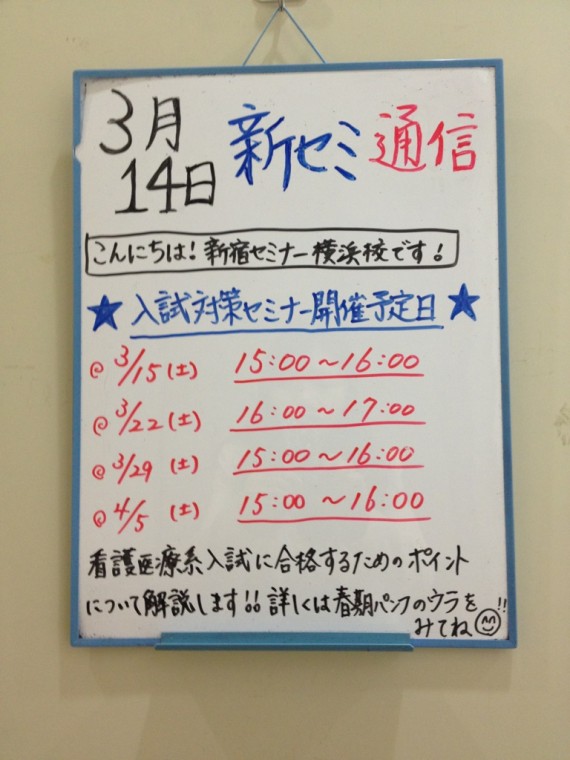 3月14日 新セミ通信
こんにちは!新宿セミナー横浜校です!
★入試対策セミナー開催予定日★
@ 3/15(土) 15:00~16:00
@ 3/22(土) 16:00~17:00
@ 3/29(土) 15:00~16:00
@ 4/5(土) 15:00~16:00
看護医療系入試に合格するためのポイント
について解説します!!詳しくは春期パンフのウラを
みてね!!